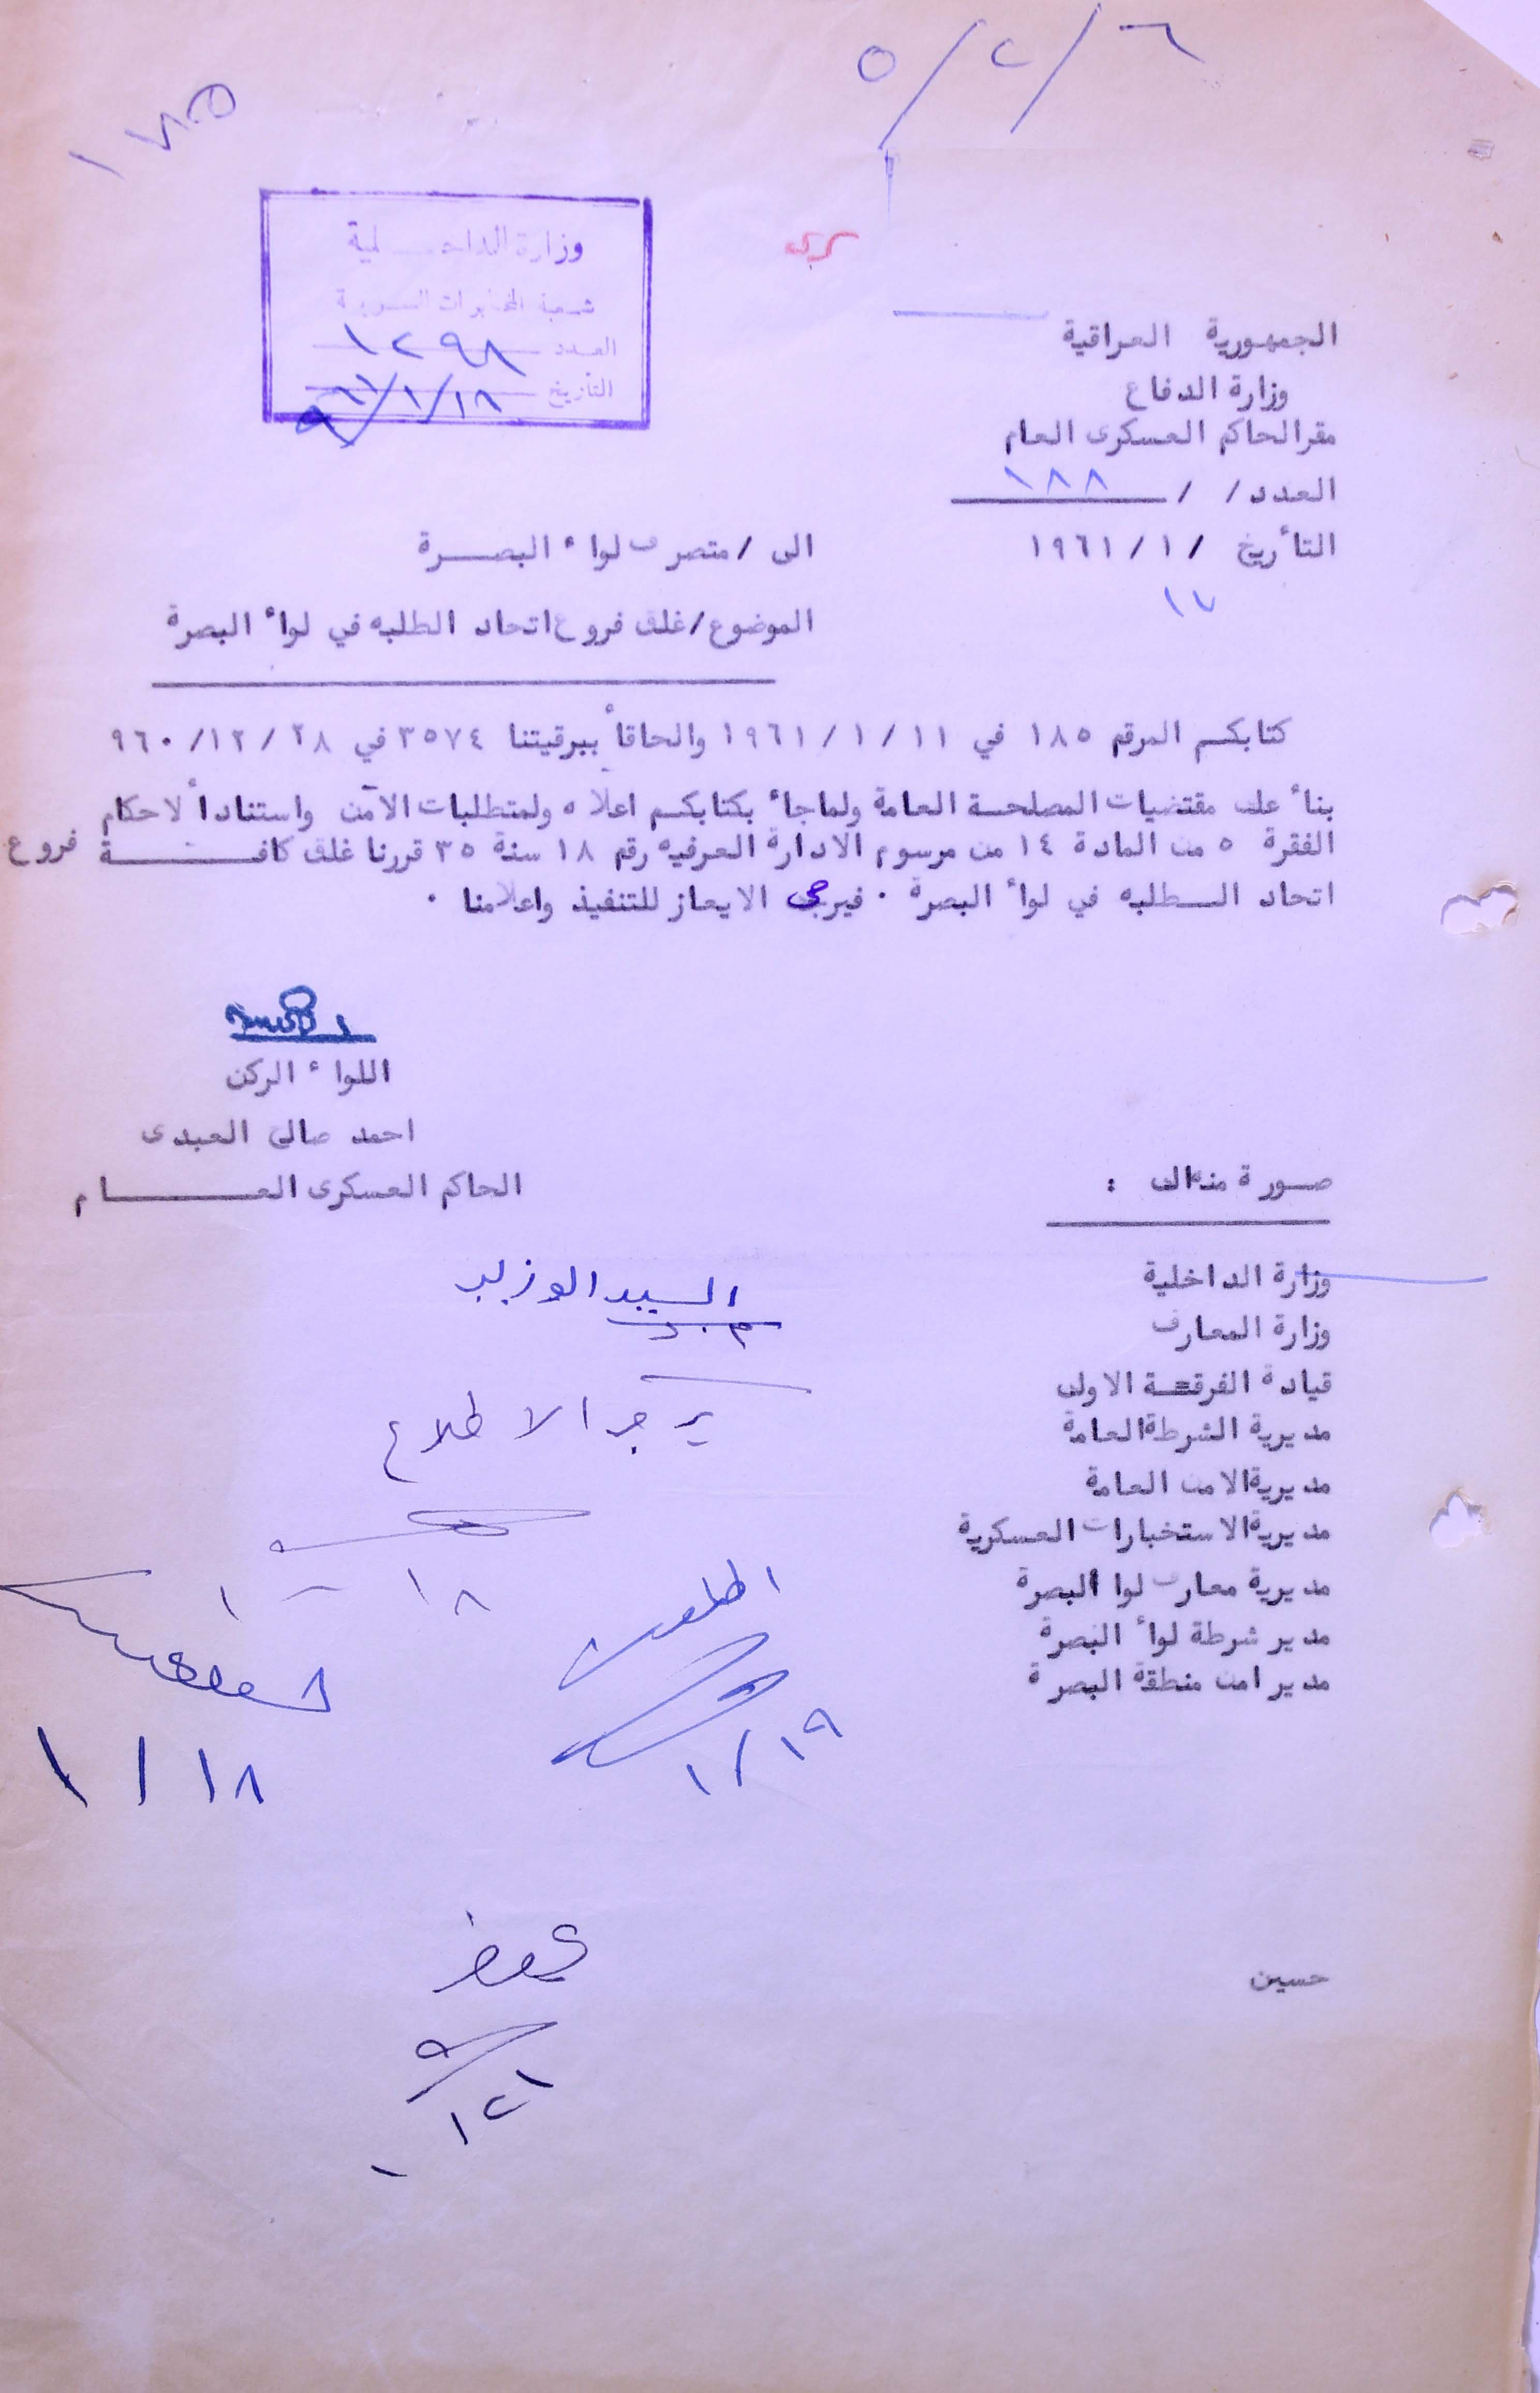 ٥/٢/٦
١٧٥
وزارة الداخـــلية
شعبة المخابرات السرية
العدد ١٢٩٨
التأريخ ٦١/١/١٨
سري
الجمهورية العراقية
وزارة الدفاع
مقرالحاكم العسكرى العام
العدد/ / ١٨٨
التأريخ ١٧ /١/ ١٩٦١
الى /متصرف لواء البصــرة
الموضوع/غلق فروع اتحاد الطلبه في لواء البصرة
كتابكم المرقم ١٨٥ في ١١ /١ /١٩٦١ والحاقاً ببرقيتنا ٣٥٧٤ في ٢٨ /١٢ /٩٦٠
بناءً على مقتضيات المصلحة العامة ولماجاء بكتابكم اعلاه ولمتطلبات الأمن واستناداً لاحكام
الفقرة ٥ من المادة ١٤ من مرسوم الادارة العرفيه رقم ١٨ سنة ٣٥ قررنا غلق كافـــــة فروع
اتحاد الــطلبه في لواء البصرة ٠ فيرجى الايعاز للتنفيذ واعلامنا ٠
اللواء الركن
احمد صالح العبدى
الحاكم العسكرى العـــــــام
صـورة منه الى :
وزارة الداخلية
وزارة المعارف
قيادة الفرقـة الاولى
مديرية الشرطةالعامة
مديريةالامن العامة
مديريةالاستخبارات العسكرية
مديرية معارف لواء البصرة
مدير شرطة لواء البصرة
مدير امن منطقة البصرة
السيد الوزير
يرجى الاطلاع
١٨ - ١
اطلعت
١٩/١
١٨ / ١
يحفظ
٢١
١
حسين